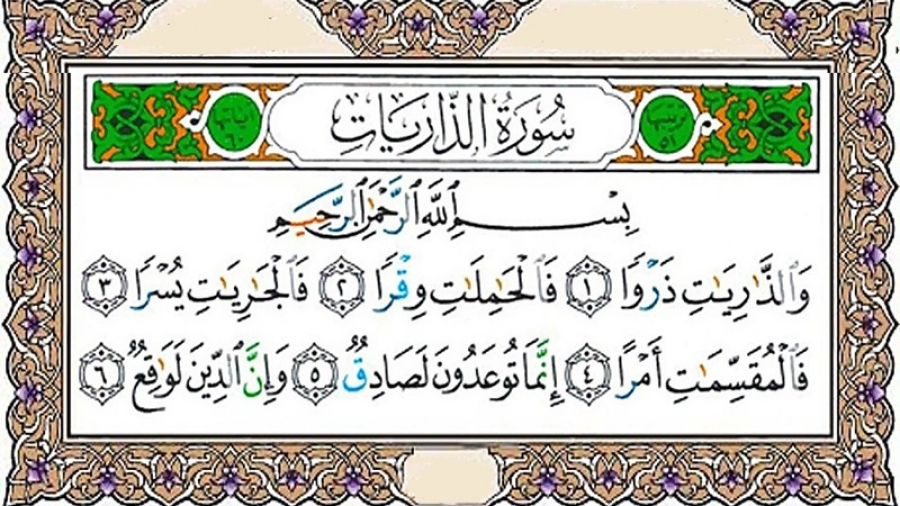 ترتيبها ٥١
سُورَةُ الذَّارِيَاتِ
آياتها ٦٠
بِسْمِ ٱللَّهِ ٱلرَّحْمَٰنِ ٱلرَّحِيمِ
وَٱلذَّٰرِيَٰتِ ذَرْوًا ١ فَٱلْحَٰمِلَٰتِ وِقْرًا ٢ فَٱلْجَٰرِيَٰتِ يُسْرًا ٣
فَٱلْمُقَسِّمَٰتِ أَمْرًا ٤ إِنَّمَا تُوعَدُونَ لَصَادِقٌ ٥ وَإِنَّ ٱلدِّينَ لَوَٰقِعٌ ٦